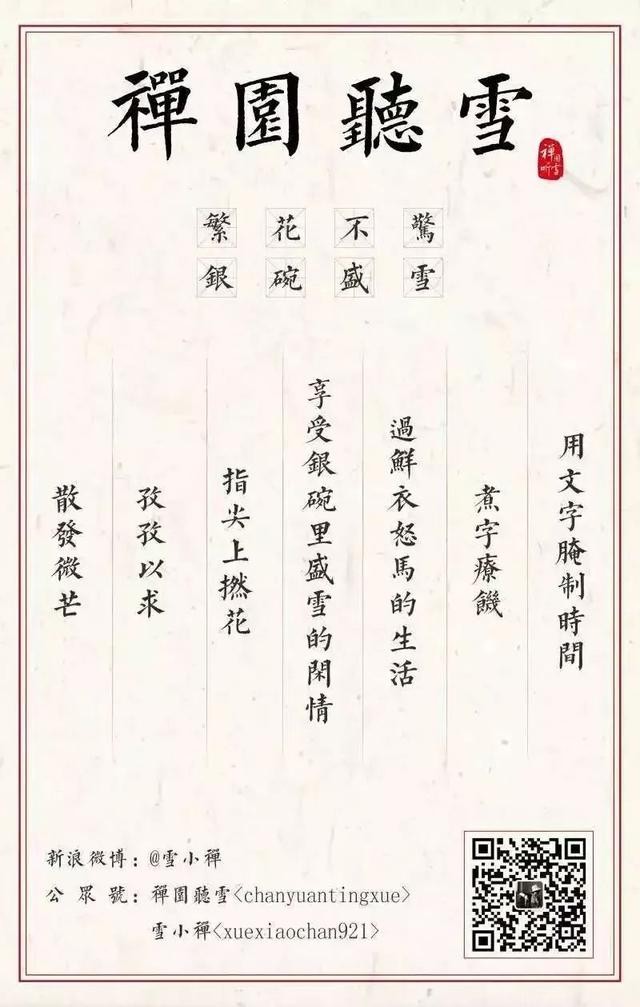 禪園聽雪
禪園听雪
繁花不驚
銀碗盛雪
用文字腌制時間
煮字療饑
過鮮衣怒馬的生活
享受銀碗里盛雪的閑情
指尖上撚花
孜孜以求
散發微芒
新浪微博：@雪小禪
公眾號：禪園聽雪<chanyuantingxue>
雪小禪<xuexiaochan921>